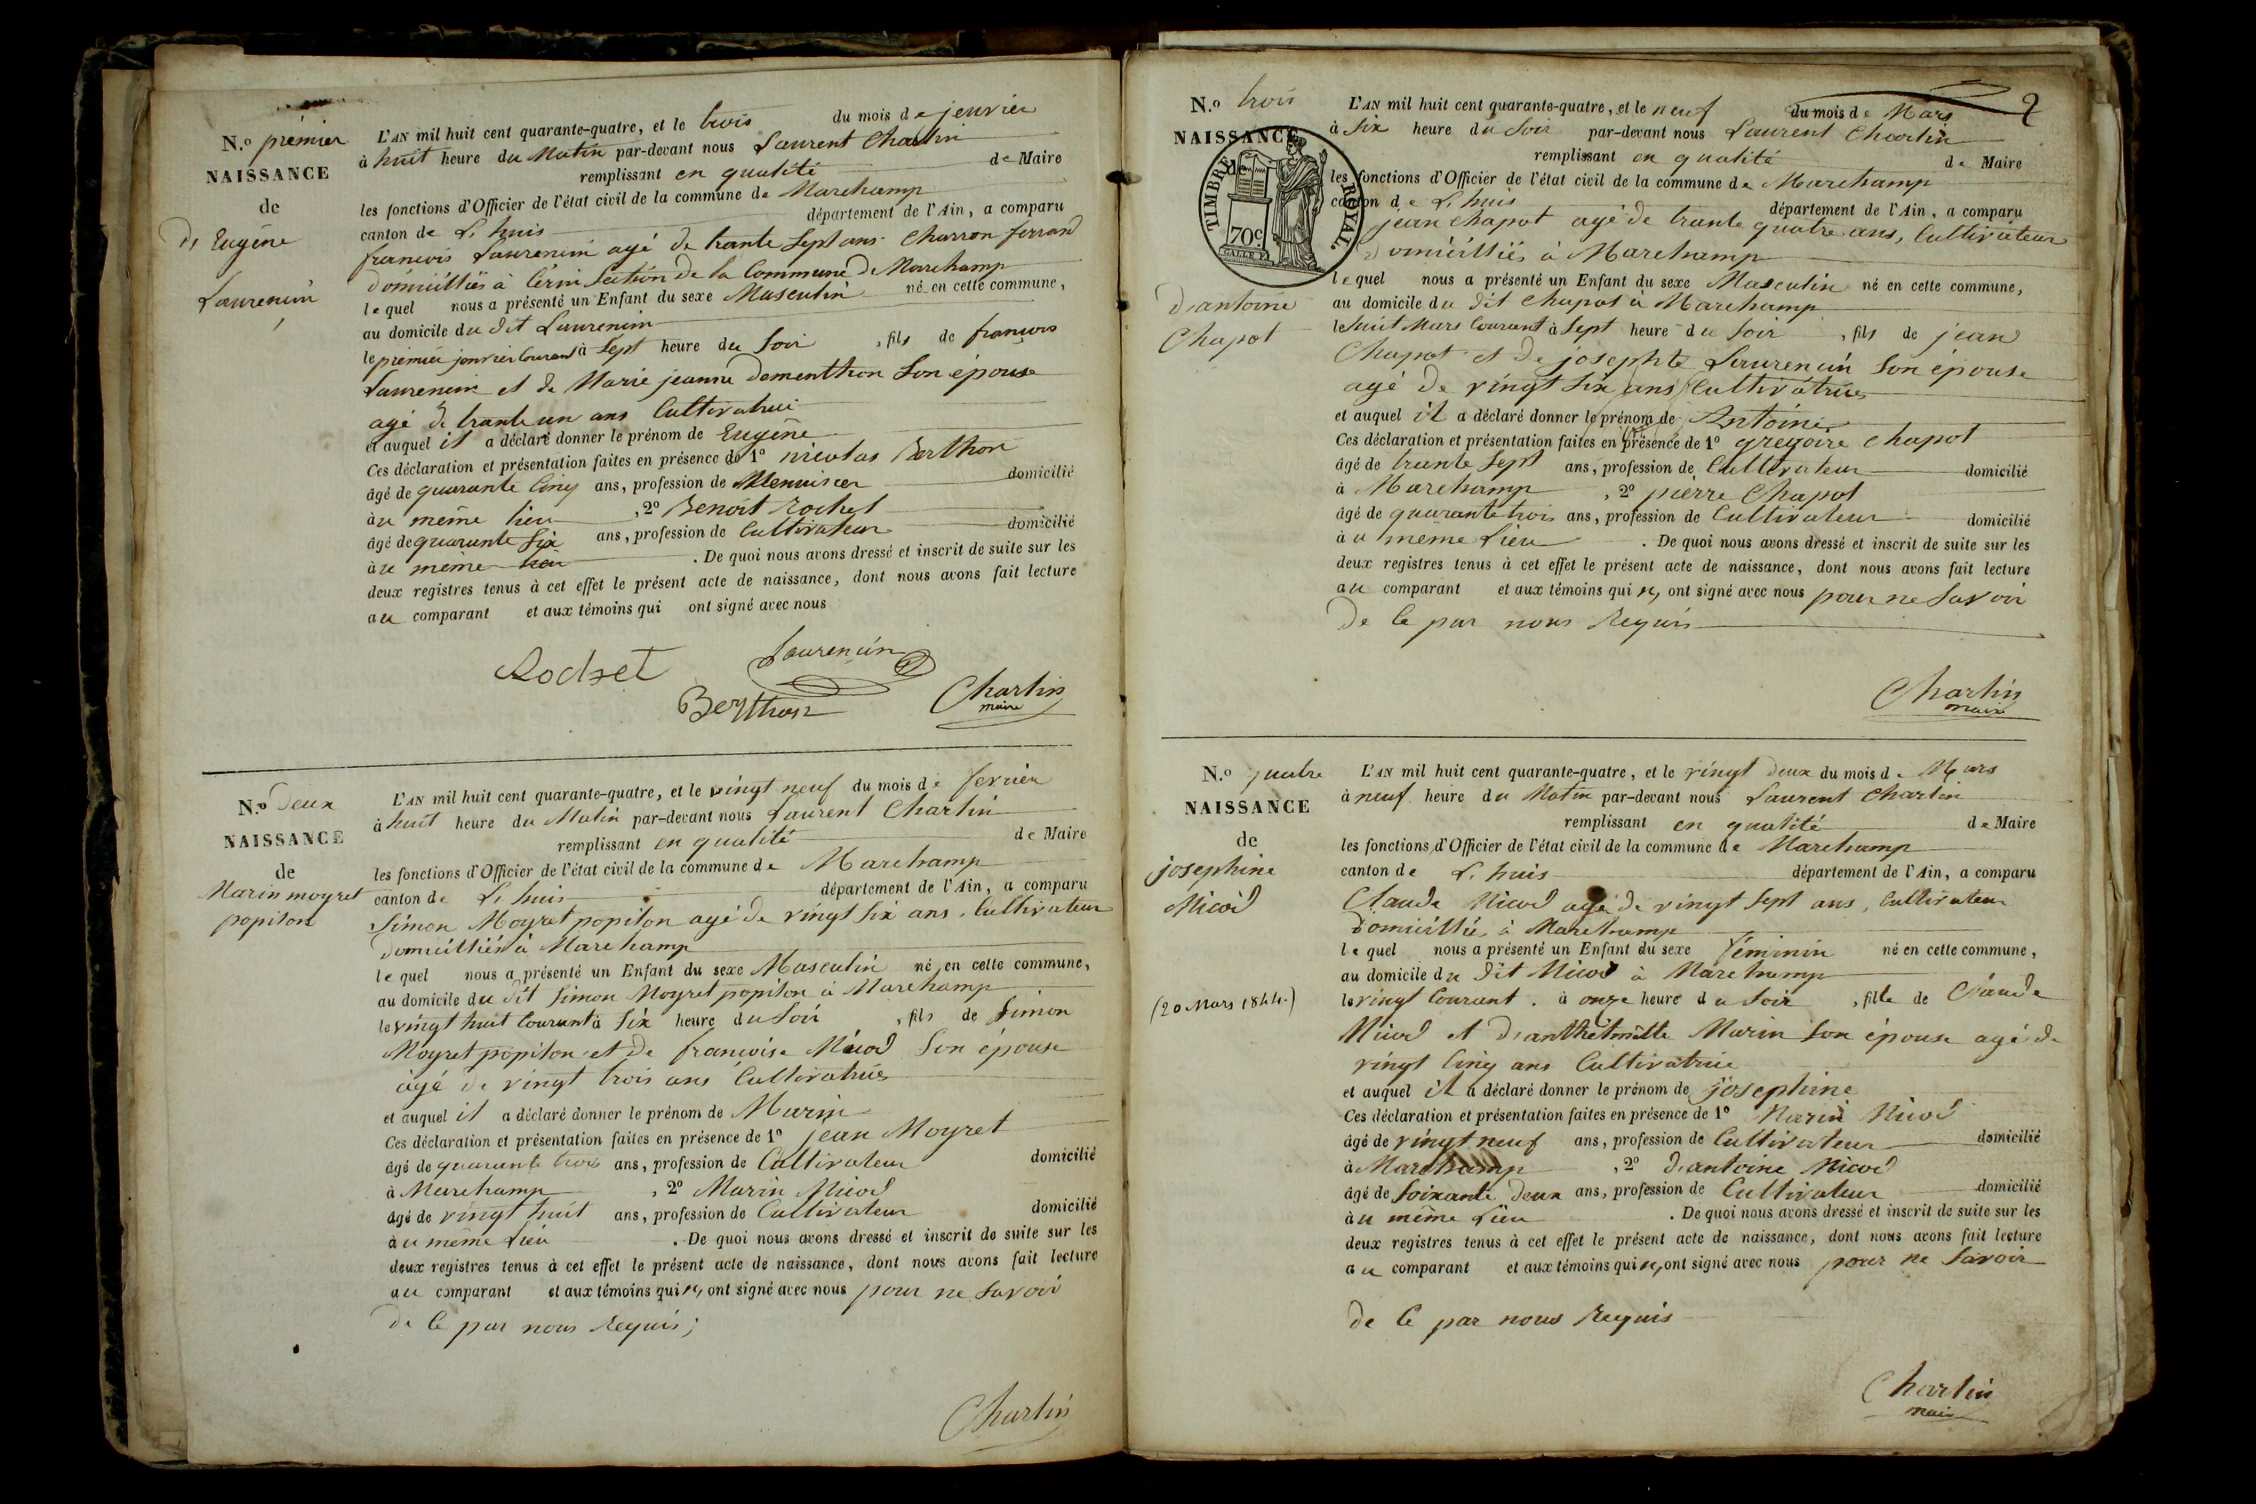 N.º prémier
NAISSANCE
de
De Eugéne
Laurencin
L'AN mil huit cent quarante-quatre, et le trois du mois de jenvier
à huit heure du Matin par-devant nous Laurent Charlin
remplissant en qualité de Maire
les fonctions d'Officier de l'état civil de la commune de Marchamp
canton de L. huis département de l'Ain, a comparu
francois Laurencin agé de trante Sept ans Charron ferrand
domicilliés à Cérin Section de la Commune de Marchamp
lequel nous a présenté un Enfant du sexe Masculin né en cette commune,
au domicile du dit Laurencin
le prémier jenvier Courant à Sept heure du Soir, fils de françois
Laurencin et de Marie jeanne dementhon Son épouse
agé de trante un ans Cultivatrice
et auquel il a déclaré donner le prénom de Eugéne
Ces déclaration et présentation faites en présence de 1º nicolas Berthon
âgé de quarante Cinq ans, profession de Menuisier domicilié
à u même lieu, 2º Benoit Rochet
âgé de quarante Six ans, profession de Cultivateur domicilié
à u même lieu. De quoi nous avons dressé et inscrit de suite sur les
deux registres tenus à cet effet le présent acte de naissance, dont nous avons fait lecture
au comparant et aux témoins qui ont signé avec nous
Rochet Laurencin
Berthon Charlin
maire
N.º Deux
NAISSANCE
de
Marin moyret
popiton
L'AN mil huit cent quarante-quatre, et le vingt neuf du mois de fevrier
à huit heure du Matin par-devant nous Laurent Charlin
remplissant en qualité de Maire
les fonctions d'Officier de l'état civil de la commune de Marchamp
canton de L. huis département de l'Ain, a comparu
Simon Moyret popiton agé de vingt Six ans, Cultivateur
domicilliés à Marchamp
lequel nous a présenté un Enfant du sexe Masculin né en cette commune,
au domicile du dit Simon Moyret popiton à Marchamp
le vingt huit Courant à Six heure du Soir, fils de Simon
Moyret popiton et de francoise Nicod Son épouse
agé de vingt trois ans Cultivatrice
et auquel il a déclaré donner le prénom de Marin
Ces déclaration et présentation faites en présence de 1º jean Moyret
âgé de quarante trois ans, profession de Cultivateur domicilié
à Marchamp, 2º Marin Nicod
âgé de vingt huit ans, profession de Cultivateur domicilié
à u même Lieu. De quoi nous avons dressé et inscrit de suite sur les
deux registres tenus à cet effet le présent acte de naissance, dont nous avons fait lecture
au comparant et aux témoins qui n'ont signé avec nous pour ne Savoir
de Ce par nous Requis;
Charlin
2
N.º trois
NAISSANCE
de
TIMBRE ROYAL
70c
D'antoine
Chapot
L'AN mil huit cent quarante-quatre, et le neuf du mois de Mars
à Six heure du Soir par-devant nous Laurent Charlin
remplissant en qualité de Maire
les fonctions d'Officier de l'état civil de la commune de Marchamp
canton de L. huis département de l'Ain, a comparu
jean Chapot agé de trante quatre ans, Cultivateur
Domicilliés à Marchamp
lequel nous a présenté un Enfant du sexe Masculin né en cette commune,
au domicile du dit Chapot à Marchamp
le huit Mars Courant à Sept heure du Soir, fils de jean
Chapot et de josephte Laurencin Son épouse
agé de vingt Six ans Cultivatrice
et auquel il a déclaré donner le prénom de Antoine
Ces déclaration et présentation faites en présence de 1º gregoire Chapot
âgé de trante Sept ans, profession de Cultivateur domicilié
à Marchamp, 2º pièrre Chapot
âgé de quarante trois ans, profession de Cultivateur domicilié
à u même Lieu. De quoi nous avons dressé et inscrit de suite sur les
deux registres tenus à cet effet le présent acte de naissance, dont nous avons fait lecture
au comparant et aux témoins qui n'ont signé avec nous pour ne Savoir
de Ce par nous Requis
Charlin
maire
N.º quatre
NAISSANCE
de
josephine
Nicod
(20 Mars 1844.)
L'AN mil huit cent quarante-quatre, et le vingt deux du mois de Mars
à neuf heure du Matin par-devant nous Laurent Charlin
remplissant en qualité de Maire
les fonctions d'Officier de l'état civil de la commune de Marchamp
canton de L. huis département de l'Ain, a comparu
Claude Nicod agé de vingt Sept ans, Cultivateur
Domicilliés à Marchamp
lequel nous a présenté un Enfant du sexe féminin né en cette commune,
au domicile du dit Nicod à Marchamp
le vingt Courant. à onze heure du Soir, fille de Claude
Nicod et d'anthelmette Marin Son épouse agé de
vingt Cinq ans Cultivatrice
et auquel il a déclaré donner le prénom de josephine
Ces déclaration et présentation faites en présence de 1º Marin Nicod
âgé de vingt neuf ans, profession de Cultivateur domicilié
à Marchamp, 2º d'antoine Nicod
âgé de Soixante Deux ans, profession de Cultivateur domicilié
à u même Lieu. De quoi nous avons dressé et inscrit de suite sur les
deux registres tenus à cet effet le présent acte de naissance, dont nous avons fait lecture
au comparant et aux témoins qui n'ont signé avec nous pour ne Savoir
de Ce par nous Requis
Charlin
maire